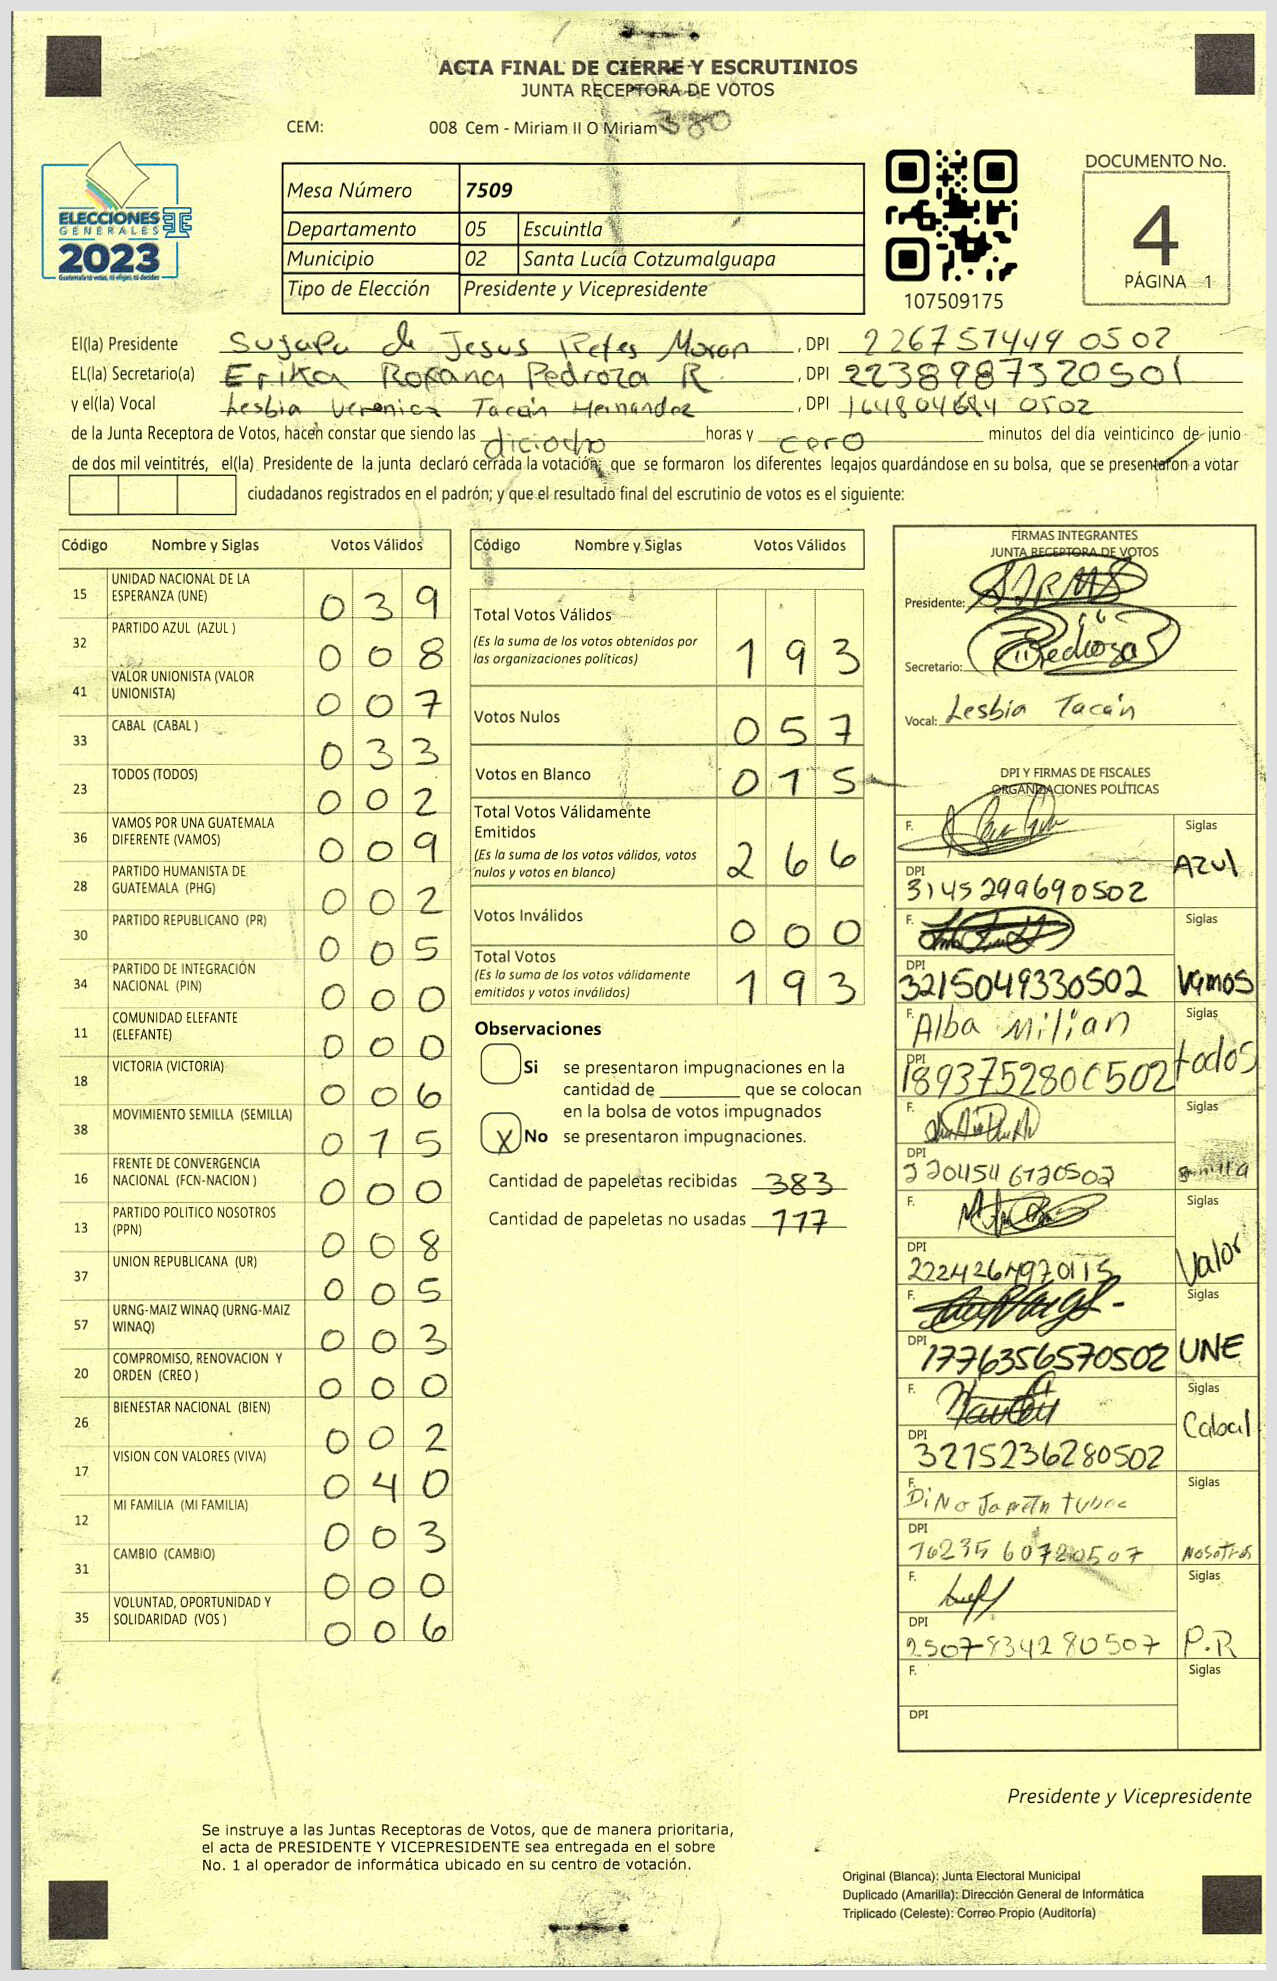 ACTA FINAL DE CIERRE Y ESCRUTINIOS
JUNTA RECEPTORA DE VOTOS
CEM: 008 Cem - Miriam II O Miriam 380
ELECCIONES
GENERALES
2023
Guatemala tú votas, tú eliges, tú decides
Mesa Número 7509
Departamento 05 Escuintla
Municipio 02 Santa Lucía Cotzumalguapa
Tipo de Elección Presidente y Vicepresidente
107509175
DOCUMENTO No.
4
PÁGINA 1
El(la) Presidente Sujapa de Jesus Retes Moran , DPI 226757449 0502
EL(la) Secretario(a) Erika Roxana Pedroza R , DPI 2238987320501
y el(la) Vocal Lesbia Veronica Tacán Hernandez , DPI 164804684 0502
de la Junta Receptora de Votos, hacen constar que siendo las diciocho horas y cero minutos del día veinticinco de junio
de dos mil veintitrés, el(la) Presidente de la junta declaró cerrada la votación; que se formaron los diferentes legajos guardándose en su bolsa, que se presentaron a votar
ciudadanos registrados en el padrón; y que el resultado final del escrutinio de votos es el siguiente:
Código Nombre y Siglas Votos Válidos
15 UNIDAD NACIONAL DE LA ESPERANZA (UNE) 039
32 PARTIDO AZUL (AZUL ) 008
41 VALOR UNIONISTA (VALOR UNIONISTA) 007
33 CABAL (CABAL ) 033
23 TODOS (TODOS) 002
36 VAMOS POR UNA GUATEMALA DIFERENTE (VAMOS) 009
28 PARTIDO HUMANISTA DE GUATEMALA (PHG) 002
30 PARTIDO REPUBLICANO (PR) 005
34 PARTIDO DE INTEGRACIÓN NACIONAL (PIN) 000
11 COMUNIDAD ELEFANTE (ELEFANTE) 000
18 VICTORIA (VICTORIA) 006
38 MOVIMIENTO SEMILLA (SEMILLA) 015
16 FRENTE DE CONVERGENCIA NACIONAL (FCN-NACION ) 000
13 PARTIDO POLITICO NOSOTROS (PPN) 008
37 UNION REPUBLICANA (UR) 005
57 URNG-MAIZ WINAQ (URNG-MAIZ WINAQ) 003
20 COMPROMISO, RENOVACION Y ORDEN (CREO ) 000
26 BIENESTAR NACIONAL (BIEN) 002
17 VISION CON VALORES (VIVA) 040
12 MI FAMILIA (MI FAMILIA) 003
31 CAMBIO (CAMBIO) 000
35 VOLUNTAD, OPORTUNIDAD Y SOLIDARIDAD (VOS ) 006
Código Nombre y Siglas Votos Válidos
Total Votos Válidos
(Es la suma de los votos obtenidos por
las organizaciones políticas) 193
Votos Nulos 057
Votos en Blanco 015
Total Votos Válidamente
Emitidos
(Es la suma de los votos válidos, votos
nulos y votos en blanco) 266
Votos Inválidos 000
Total Votos
(Es la suma de los votos válidamente
emitidos y votos inválidos) 193
Observaciones
Si se presentaron impugnaciones en la
cantidad de ________ que se colocan
en la bolsa de votos impugnados
X No se presentaron impugnaciones.
Cantidad de papeletas recibidas 383
Cantidad de papeletas no usadas 117
FIRMAS INTEGRANTES
JUNTA RECEPTORA DE VOTOS
Presidente: SJRMS
Secretario: Pedroza
Vocal: Lesbia Tacán
DPI Y FIRMAS DE FISCALES
ORGANIZACIONES POLÍTICAS
F. Siglas
DPI 3145299690502 Azul
F. Siglas
DPI 3215049330502 Vamos
F. Alba Milian Siglas
DPI 1893752800502 todos
F. Siglas
DPI 2204546720502 Semilla
F. Siglas
DPI 2224264970115 Valor
F. Siglas
DPI 1776356570502 UNE
F. Siglas
DPI 3215236280502 Cabal
F. Siglas
DPI 1623560720507 Nosotros
F. Siglas
DPI 2507834280507 P.R
F. Siglas
DPI
Presidente y Vicepresidente
Se instruye a las Juntas Receptoras de Votos, que de manera prioritaria,
el acta de PRESIDENTE Y VICEPRESIDENTE sea entregada en el sobre
No. 1 al operador de informática ubicado en su centro de votación.
Original (Blanca): Junta Electoral Municipal
Duplicado (Amarilla): Dirección General de Informática
Triplicado (Celeste): Correo Propio (Auditoría)